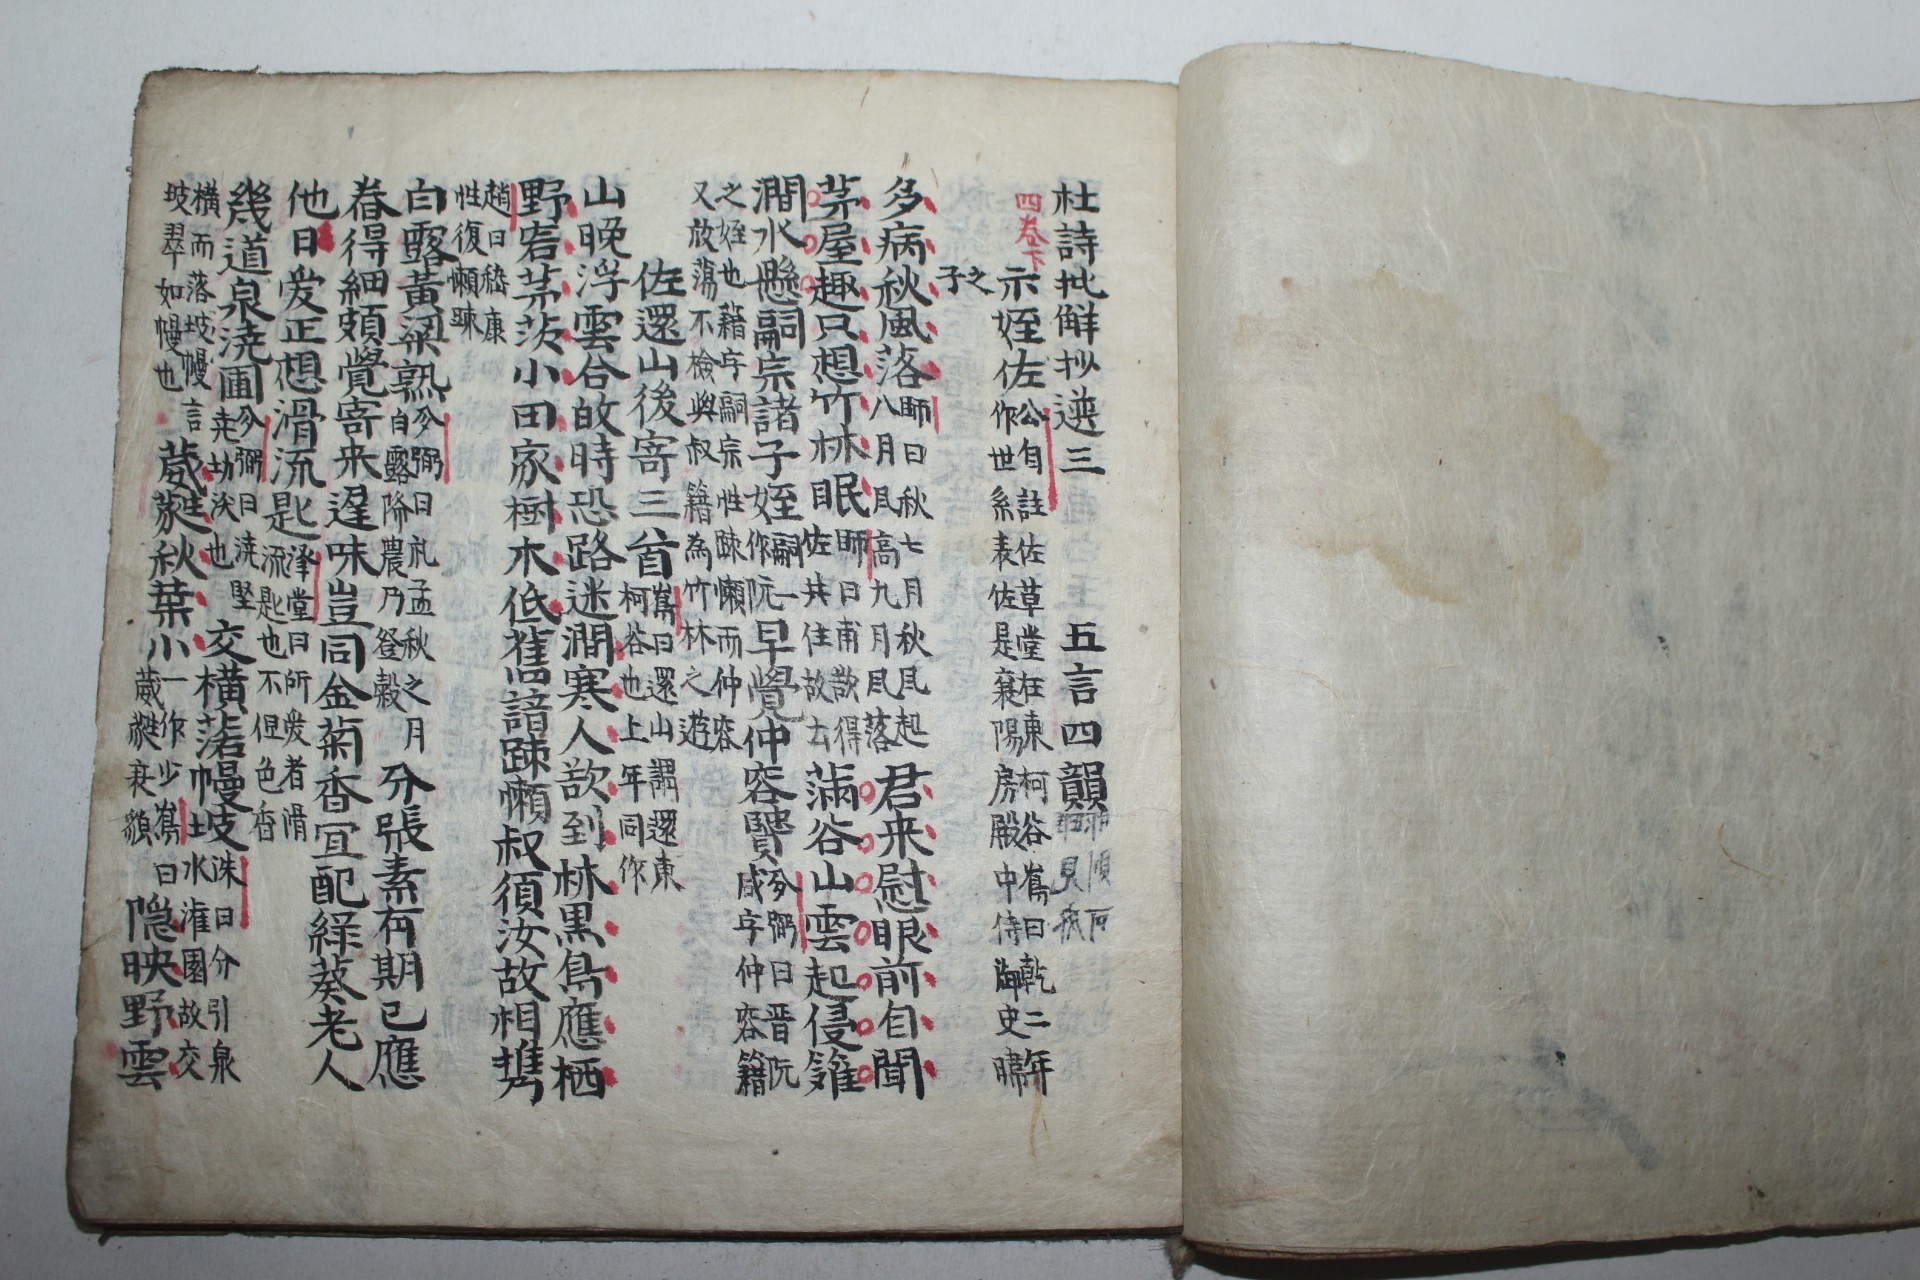 杜詩批解抄選三　五言四韻
四卷下
示姪佐公自註佐草堂在東柯谷嵩曰乾二年作世系表佐是襄陽房殿中侍御史暐
之子
多病秋風落師曰秋七月秋風起八月風高九月風落君来慰眼前自聞
茅屋趣只想竹林眠師曰甫歆得佐共住故去滿谷山雲起侵籬
澗水懸嗣宗諸子姪嗣一作阮早覺仲容賢夛弼曰晋阮咸字仲容籍
之姪也籍字嗣宗性踈懶而仲容又放蕩不檢與叔籍為竹林之遊
佐還山後寄三首嵩曰還山謂還東柯谷也上年同作
山晚浮雲合故時恐路迷澗寒人欲到林黒鳥應栖
野客茅茨小田家樹木低舊諳踈懶叔須汝故相携
趙曰嵇康性復懶踈
白露黃粱熟夛弼曰礼孟秋之月白露降農乃登穀分張素有期已應
春得細頗覺寄来遲味豈同金菊香宜配綠葵老人
他日爱正想滑流匙澤堂曰所爱者滑流匙也不但色香
幾道泉澆圃夛弼曰澆堅堯切沃也交橫落幔坡洙曰分引泉水灌園故交
橫而落坡幔言坡翠如幔也葳蕤秋葉小一作少嵩曰葳蕤衰貌隠映野雲